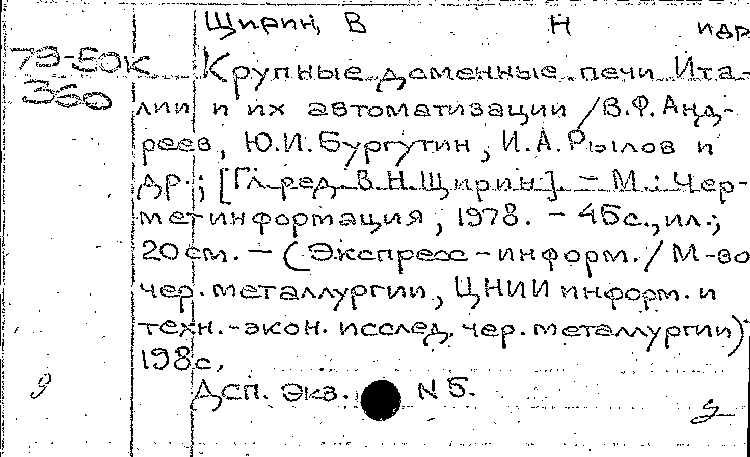 Щирин, В Н и др
79-50к Крупные доменные печи Ита-
360 лии и их автоматизации /В.Ф. Анд-
реев, Ю.И. Бургутин, И.А. Рылов и
др.; [Гл. ред. В.Н. Щирин]. - М.: Чер-
метинформация, 1978. - 45с., ил.;
20 см. - (Экспресс-информ. / М-во
чер. металлургии, ЦНИИ информ. и
техн.-экон. исслед. чер. металлургии)
198с.
ДСП. Экз. N 5.